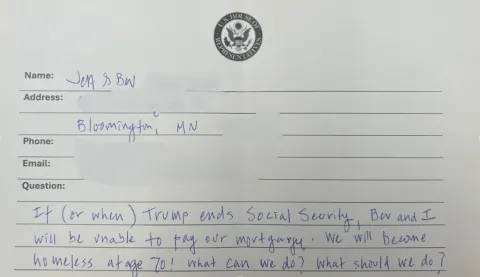 U.S. HOUSE OF REPRESENTATIVES
Name: Jeff & Bev
Address:
Bloomington, MN
Phone:
Email:
Question:
If (or when) Trump ends Social Security, Bev and I
will be unable to pay our mortgage. We will become
homeless at age 70! What can we do? What should we do?